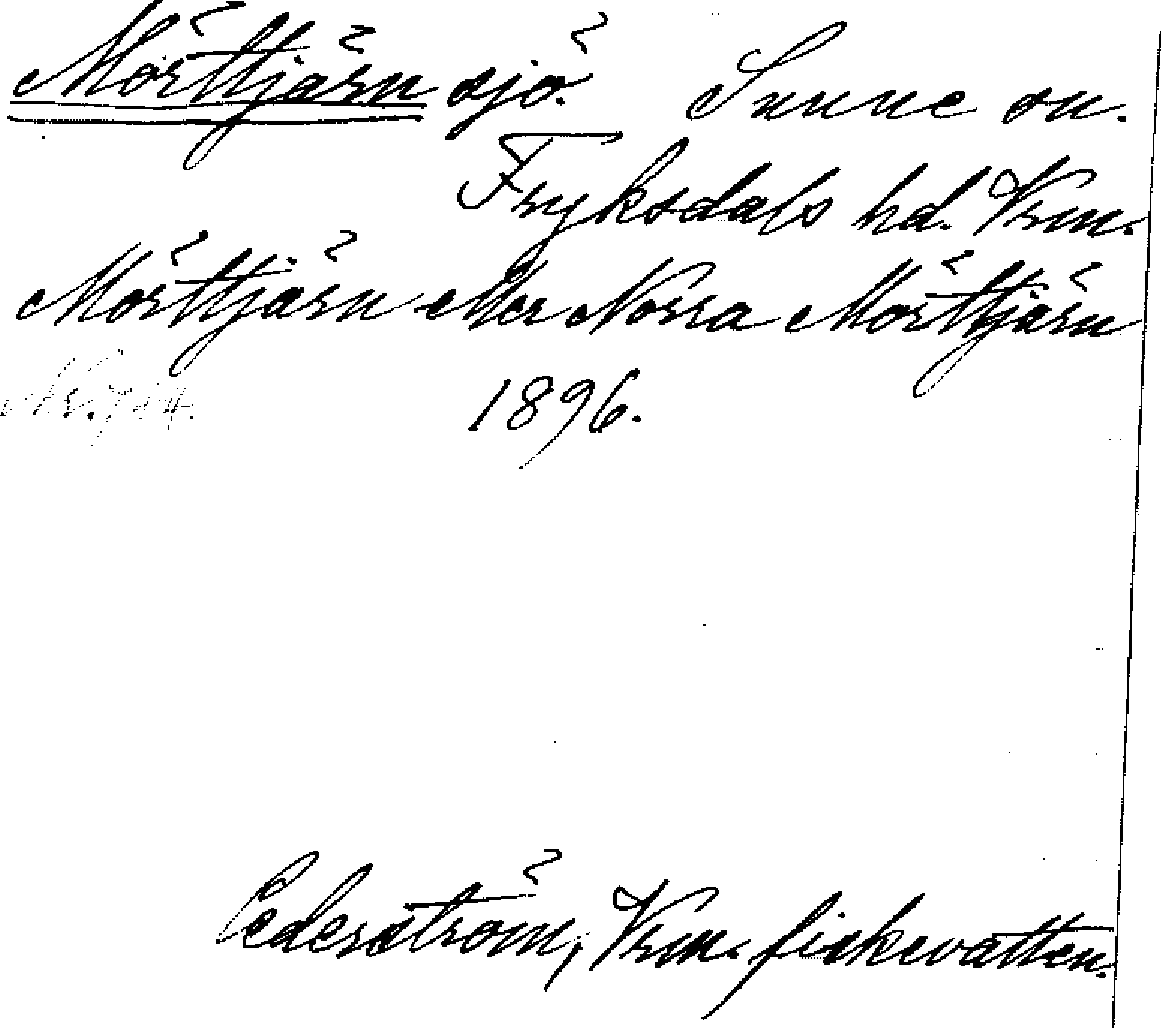 Mörttjärn sjö. Sunne sn.
Fryksdals hd. Vrm.
Mörttjärn eller Norra Mörttjärn
1896.
Cederström, Vrm. fiskevatten.